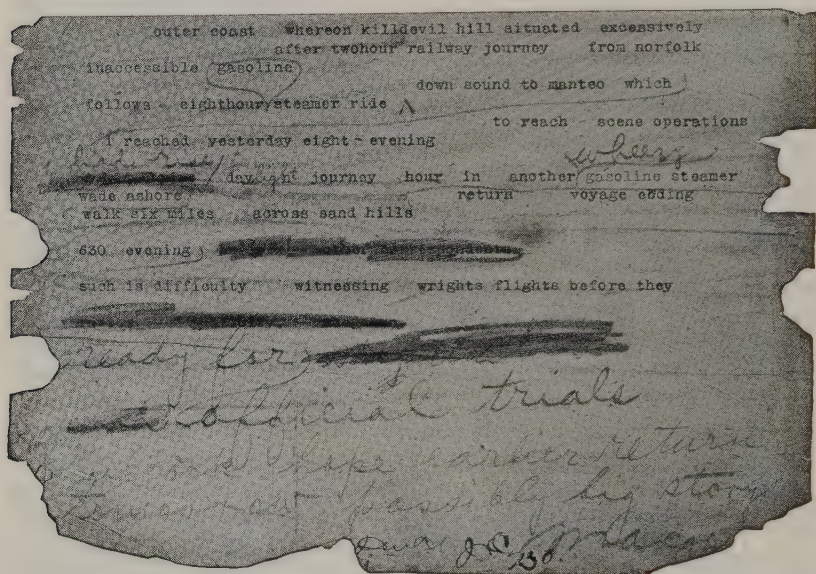 outer coast whereon killdevil hill situated excessively
after twohour railway journey from norfolk
inaccessible gasoline
down sound to manteo which
follows eighthour steamer ride
to reach scene operations
i reached yesterday eight evening
wheezy
day journey hour in another gasoline steamer
wade ashore return voyage ending
walk six miles across sand hills
630 evening
such is difficulty witnessing wrights flights before they
ready for
official trials
hope earlier return
possibly big story